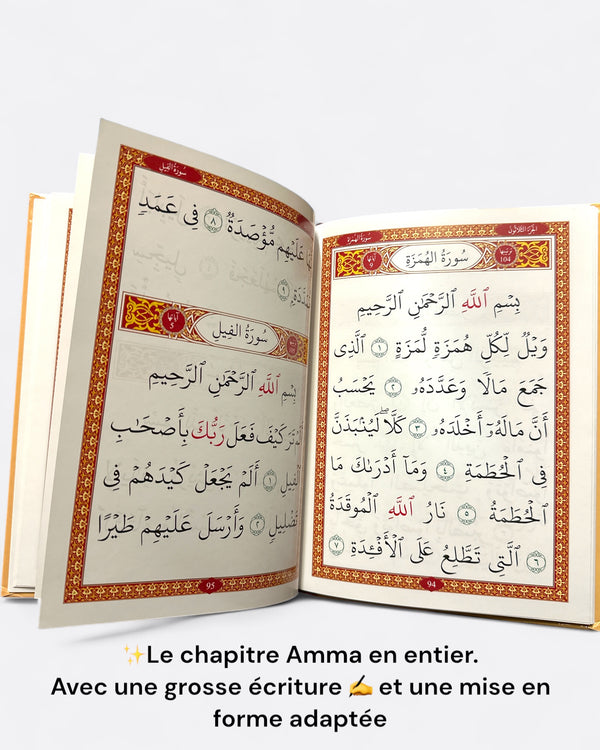 الجزء الثلاثون سورة الهمزة
104 سُورَةُ الهُمَزَةِ
بِسْمِ ٱللَّهِ ٱلرَّحْمَٰنِ ٱلرَّحِيمِ
وَيْلٌ لِّكُلِّ هُمَزَةٍ لُّمَزَةٍ ١ ٱلَّذِى
جَمَعَ مَالًا وَعَدَّدَهُۥ ٢ يَحْسَبُ
أَنَّ مَالَهُۥٓ أَخْلَدَهُۥ ٣ كَلَّاۖ لَيُنۢبَذَنَّ
فِى ٱلْحُطَمَةِ ٤ وَمَآ أَدْرَىٰكَ مَا
ٱلْحُطَمَةُ ٥ نَارُ ٱللَّهِ ٱلْمُوقَدَةُ
٦ ٱلَّتِى تَطَّلِعُ عَلَى ٱلْأَفْـِٔدَةِ ٧
94
سورة الفيل
عَلَيْهِم مُّؤْصَدَةٌ ٨ فِى عَمَدٍ
٩
سُورَةُ الفِيلِ 5
بِسْمِ ٱللَّهِ ٱلرَّحْمَٰنِ ٱلرَّحِيمِ
تَرَ كَيْفَ فَعَلَ رَبُّكَ بِأَصْحَٰبِ
ٱلْفِيلِ ١ أَلَمْ يَجْعَلْ كَيْدَهُمْ فِى
تَضْلِيلٍ ٢ وَأَرْسَلَ عَلَيْهِمْ طَيْرًا
95
✨Le chapitre Amma en entier.
Avec une grosse écriture ✍️ et une mise en
forme adaptée